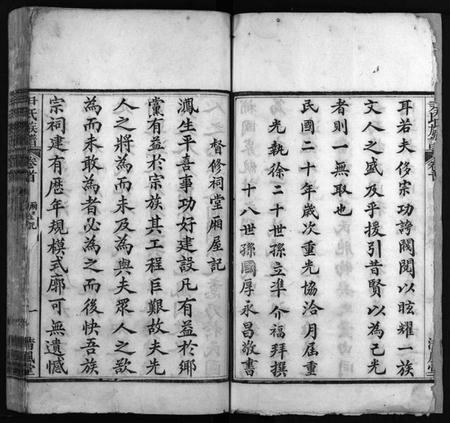 耳若夫侈宗功誇閥閱以眩耀一族
文人之盛及乎援引昔賢以為己光
者則一無取也
民國二十年歲次重光協洽月屆重
光執徐二十世孫立準介福拜撰
十八世孫國厚永昌敬書
督修祠堂廂屋記
鴻生平喜事功好建設凡有益於鄉
黨有益於宗族其工程巨艱故夫光
人之將為而未及為與夫眾人之欲
為而未敢為者必為之而後快吾族
宗祠建有歷年規模式廓可無遺憾
尹氏族譜 卷首
一 清風堂